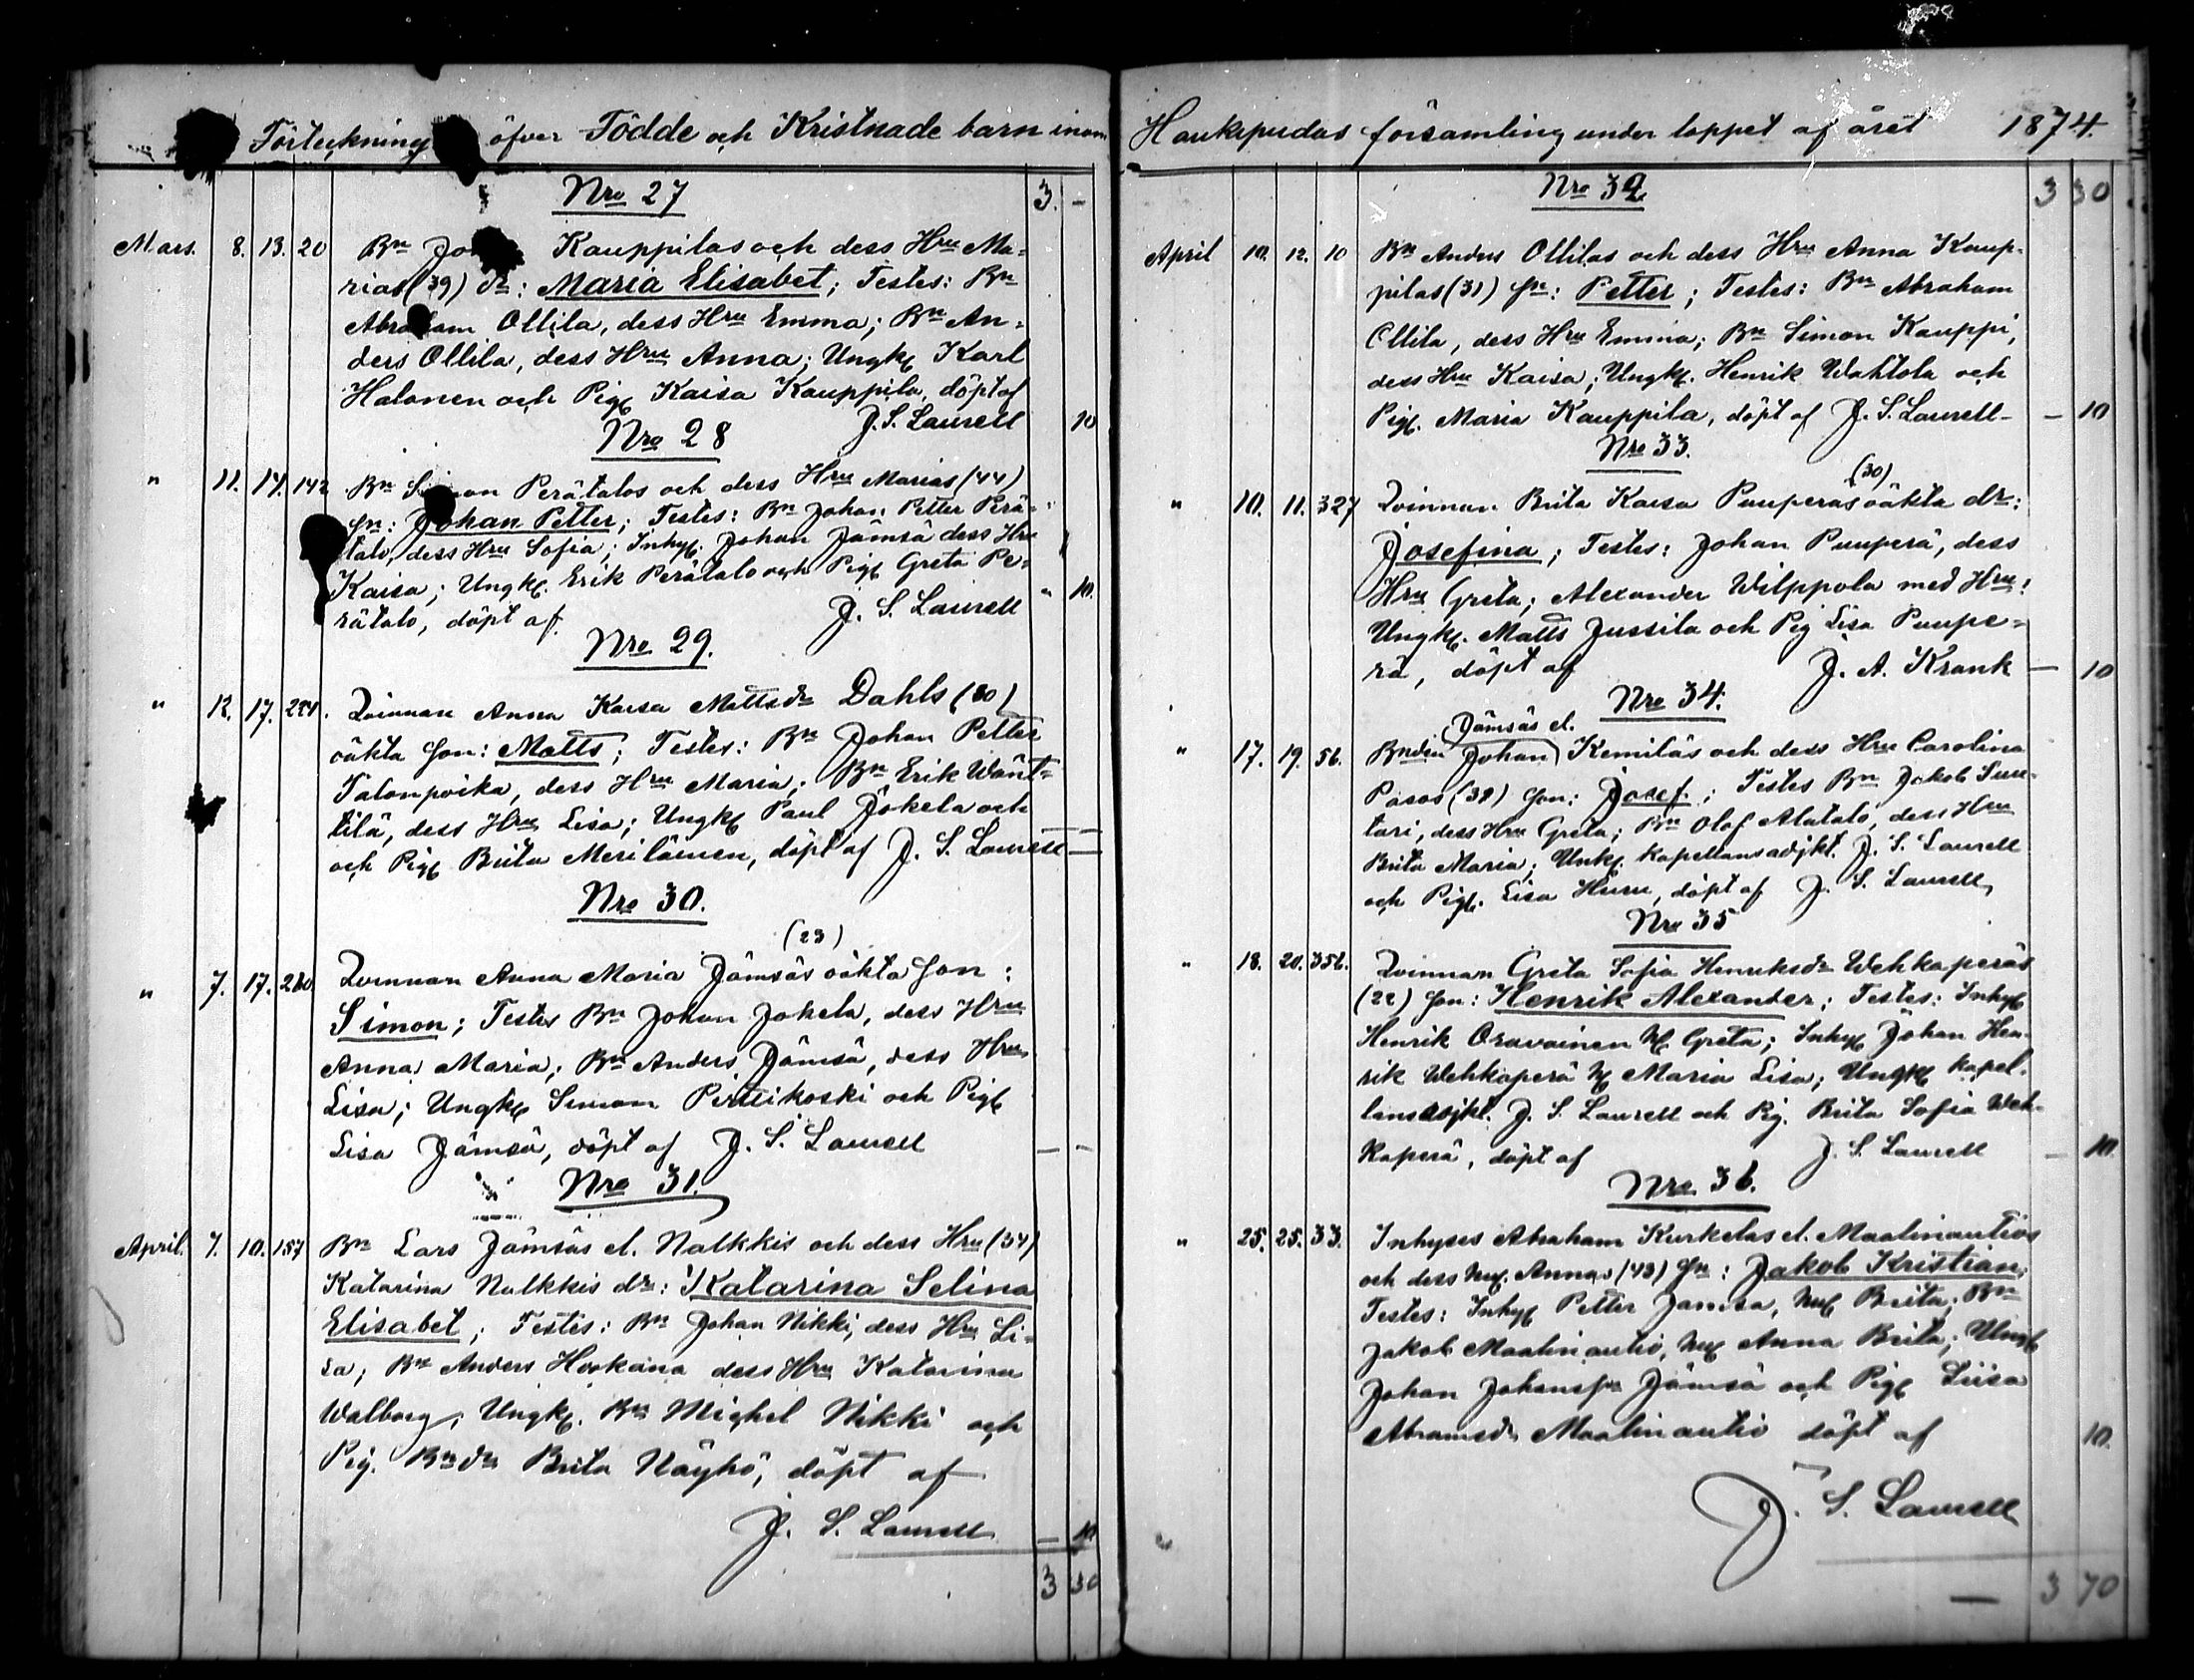 Förteckning öfver Födde och Kristnade barn inom
Nro 27
3. -
Mars. 8. 13. 20 Bn Kauppilas och dess Hru Ma-
rias (39) dr: Maria Elisabet; Testes: Bn
Abraham Ollila, dess Hru Emma; Bn An-
ders Ollila, dess Hru Anna; Ungk. Karl
Halonen och Pig. Kaisa Kauppila, döpt af
J. S. Laurell 10
Nro 28
" 11. 14. 142 Bn Simon Perätalos och dess Hru Marias (44)
sn: Johan Petter; Testes: Bn Johan Petter Perä-
talo, dess Hru Sofia; Inhy. Johan Jämsä dess Hru
Kaisa; Ungk. Erik Perätalo och Pig. Greta Pe-
rätalo, döpt af J. S. Laurell " 10.
Nro 29.
" 12. 17. Qvinnan Anna Kaisa Mattsdr Dahls (30)
oäkta son: Matts; Testes: Bn Johan Petter
Talonpoika, dess Hru Maria; Bn Erik Wänt-
tilä, dess Hru Lisa; Ungk. Paul Jokela och
och Pig. Brita Meriläinen, döpt af J. S. Laurell —
Nro 30.
(23)
" 7. 17. 260 Qvinnan Anna Maria Jämsäs oäkta son:
Simon; Testes Bn Johan Jokela, dess Hru
Anna Maria; Bn Anders Jämsä, dess Hru
Lisa; Ungk. Simon och Pig.
Lisa Jämsä, döpt af J. S. Laurell — -
Nro 31.
April. 7. 10. 157 Bn Lars Jämsäs el. Nalkkis och dess Hru (34)
Katarina Nalkkis dr: Katarina Selina
Elisabet; Testes: Bn Johan Nikki, dess Hru Li-
sa; Bn Anders dess Hru Katarina
Walborg; Ungk. Bn Michel Nikki och
Pig. Bndr Brita Näyhö, döpt af
J. S. Laurell — 10
3 30
Haukipudas församling under loppet af året 1874.
Nro 32
3 30
April 10. 12. 10 Bn Anders Ollilas och dess Hru Anna Kaup-
pilas (31) sn: Petter; Testes: Bn Abraham
Ollila, dess Hru Emma; Bn Simon Kauppi,
dess Hru Kaisa; Ungk. Henrik Wahtola och
Pig. Maria Kauppila, döpt af J. S. Laurell — 10
Nro 33.
(30)
" 10. 11. 327 Qvinnan Brita Kaisa Puuperäs oäkta dr:
Josefina; Testes: Johan Puuperä, dess
Hru Greta; Alexander Wilppola med Hru;
Ungk. Matts Jussila och Pig Lisa Puupe-
rä, döpt af J. A. Krank — 10
Nro 34.
Jämsäs el.
" 17. 19. 56. Johan Kemiläs och dess Hru Carolina
Pasos (38) son: Josef; Testes Bn Jakob Suu-
tari, dess Hru Greta; Bn Olof Alatalo, dess Hru
Brita Maria; Unkg. Kapellansadjkt. J. S. Laurell
och Pig. Lisa Huru, döpt af J. S. Laurell
Nro 35
" 18. 20. 356. Qvinnan Greta Sofia Henriksdr Wehkaperäs
(22) son: Henrik Alexander; Testes: Inhy.
Henrik Oravainen H. Greta; Inhy. Johan Hen-
rik Wehkaperä H. Maria Lisa; Ungk. Kapel-
lansadjkt. J. S. Laurell och Pig. Brita Sofia Weh-
kaperä, döpt af J. S. Laurell — 10.
Nro 36.
" 25. 25. 33. Inhyses Abraham Kurkelas el. Maalinautios
och dess hu. Annas (43) sn: Jakob Kristian;
Testes: Inhy. Petter Jämsä, hu. Brita; Bn
Jakob Maalinautio, hu. Anna Brita; Ungk.
Johan Johanss. Jämsä och Pig. Liisa
Abramsdr Maalinautio döpt af 10.
J. S. Laurell
— 3 70